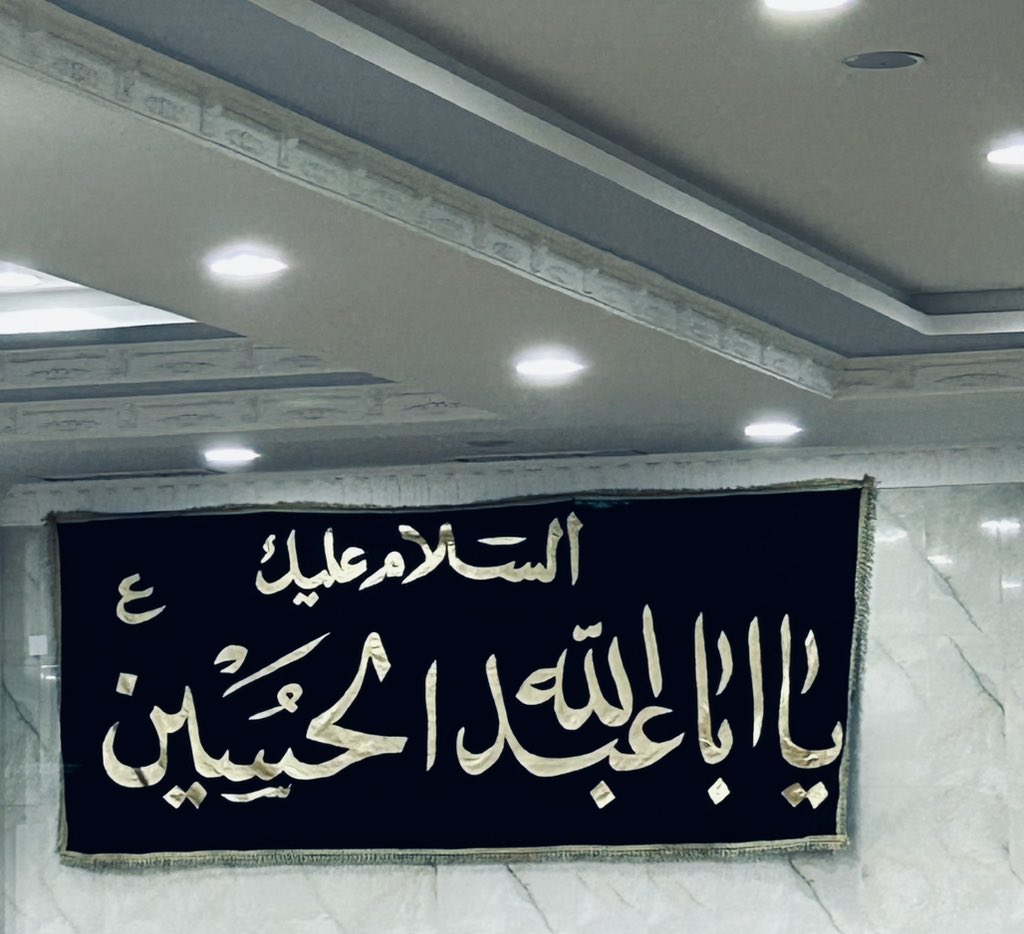 السلام عليك
ع
يا ابا عبد الله الحُسَين